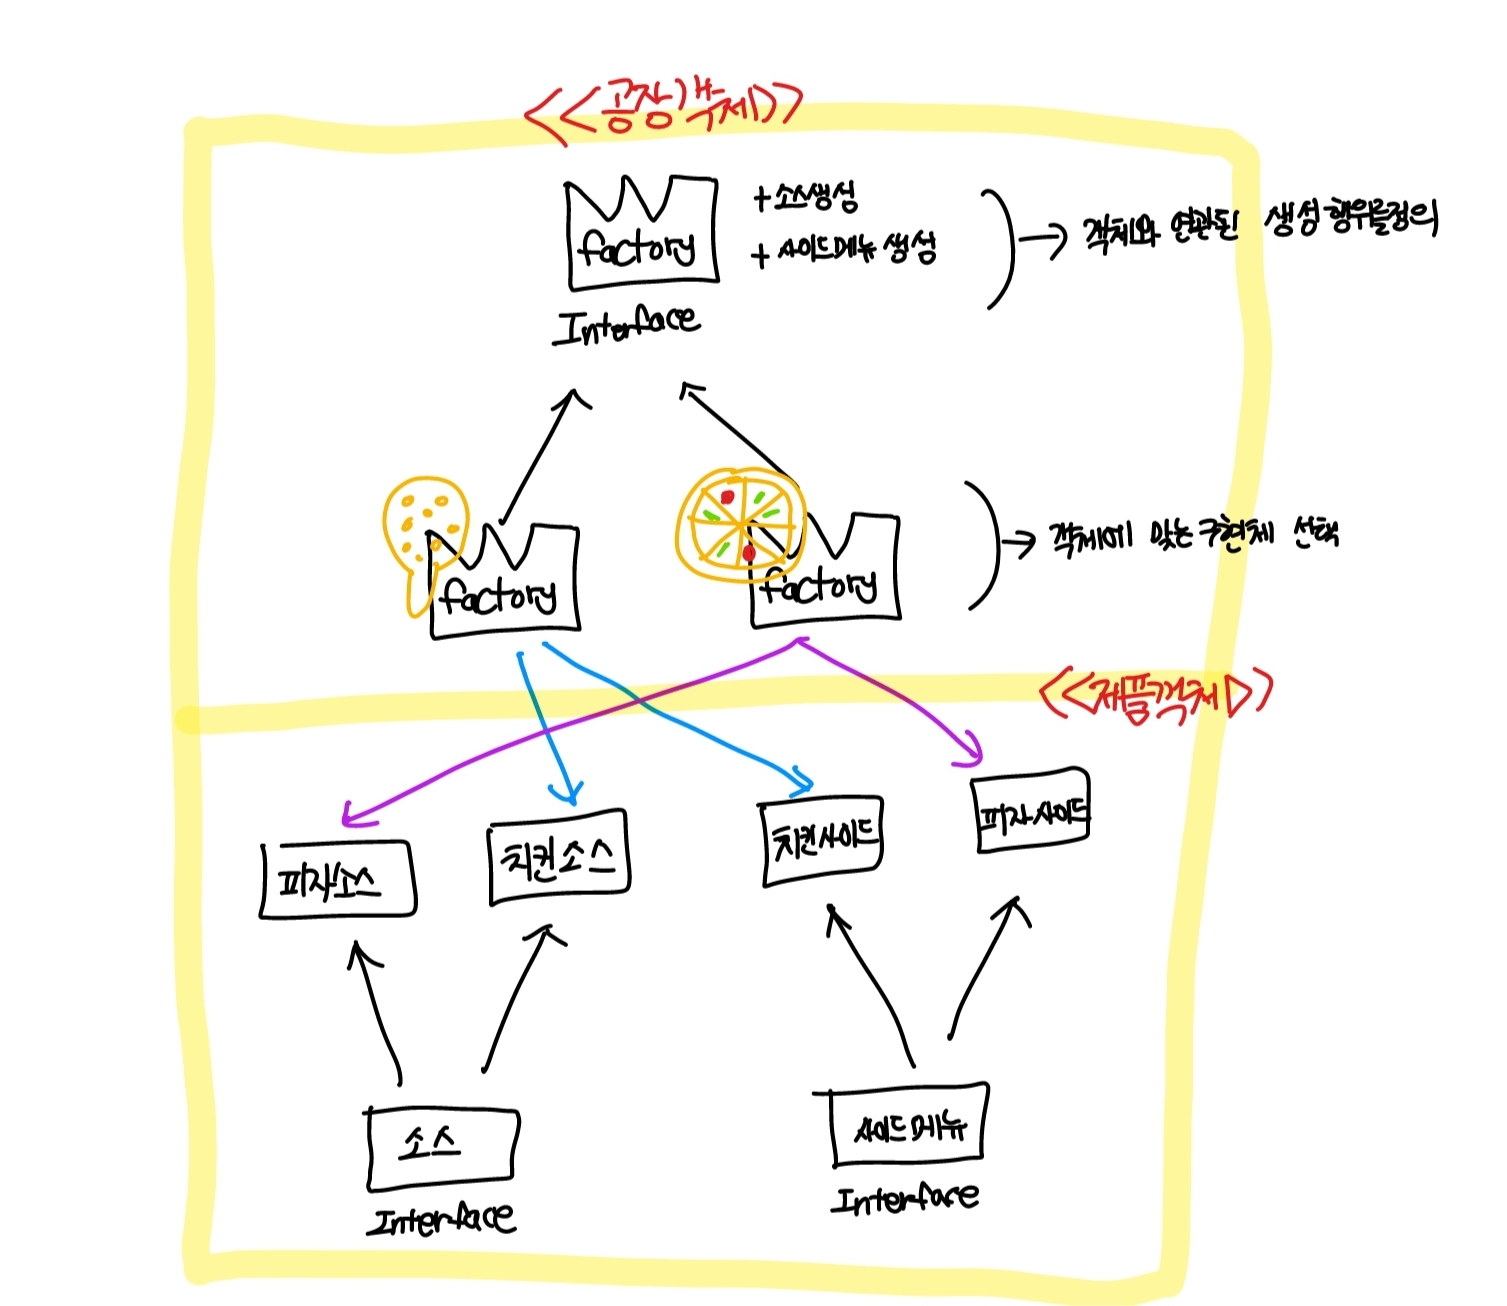 <<공장객체>>
factory
+ 소스생성
+ 사이드메뉴 생성
→ 객체와 연관된 생성 행위를정의
Interface
factory
factory
→ 객체에 맞는 구현체 선택
<<제품객체>>
피자소스
치킨소스
치킨사이드
피자사이드
소스
Interface
사이드메뉴
Interface